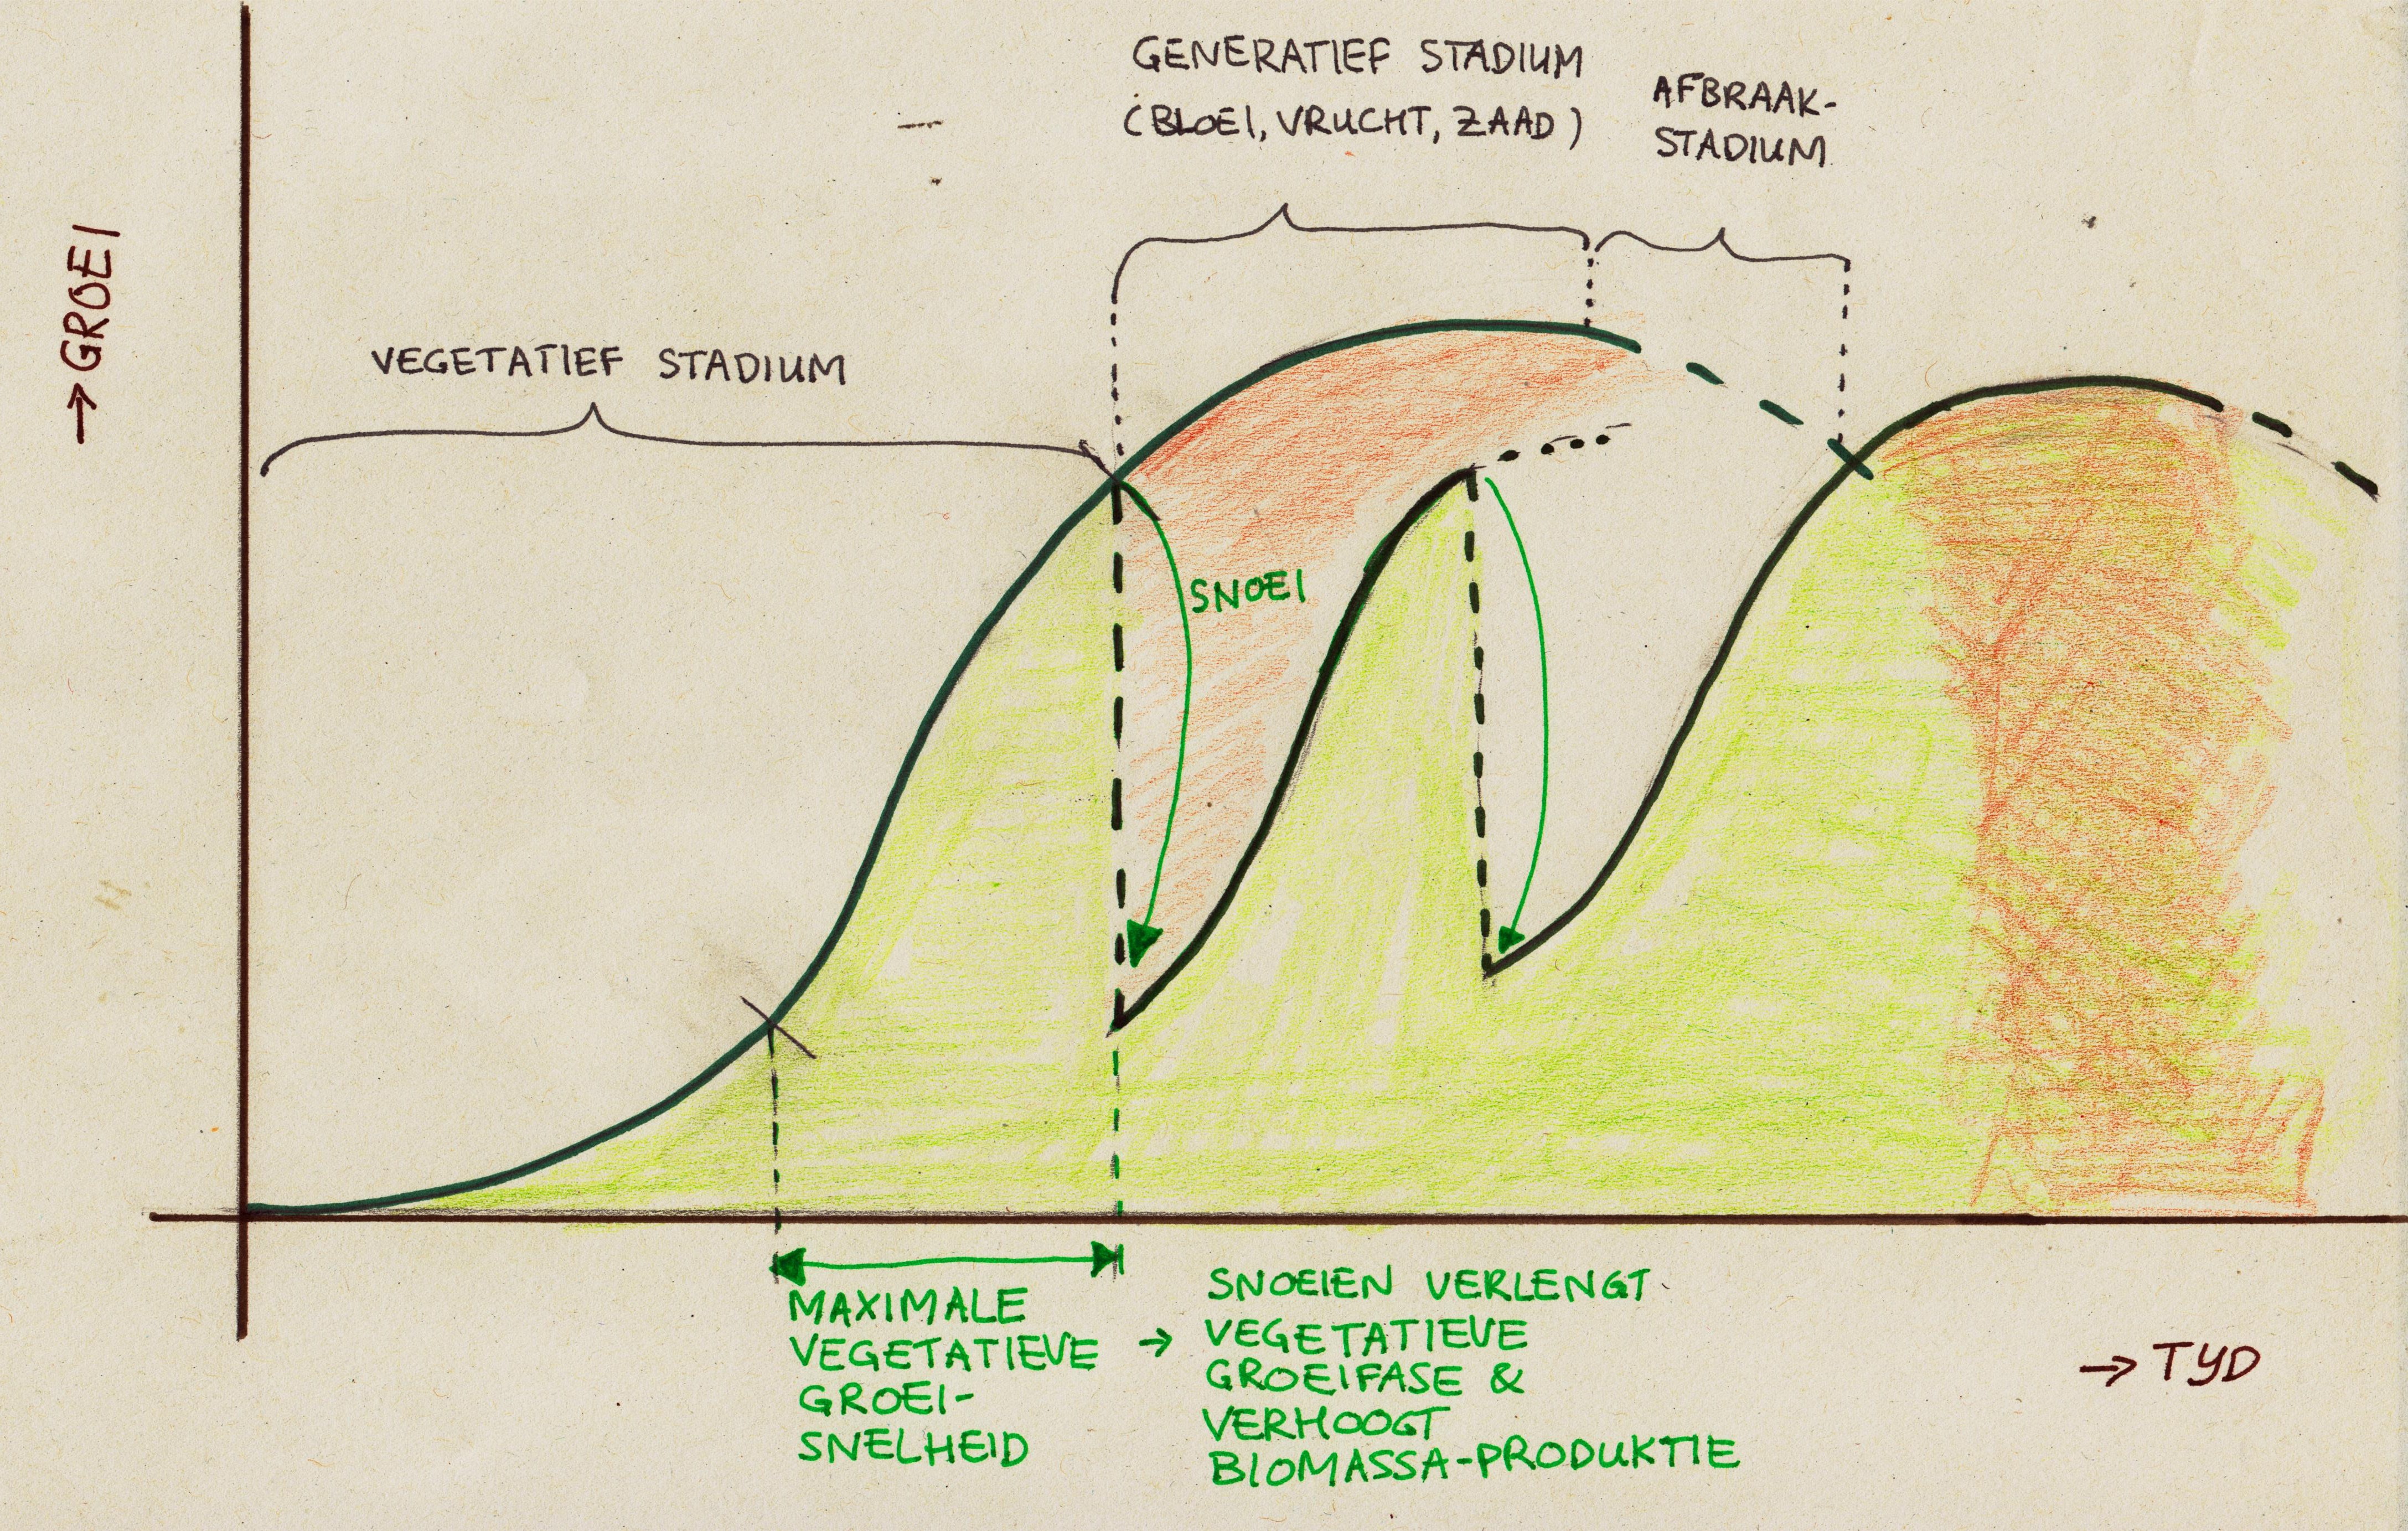 GENERATIEF STADIUM
(BLOEI, VRUCHT, ZAAD)
AFBRAAK-
STADIUM
→ GROEI
VEGETATIEF STADIUM
SNOEI
MAXIMALE
VEGETATIEVE
GROEI-
SNELHEID
→
SNOEIEN VERLENGT
VEGETATIEVE
GROEIFASE &
VERHOOGT
BIOMASSA-PRODUKTIE
→ TYD